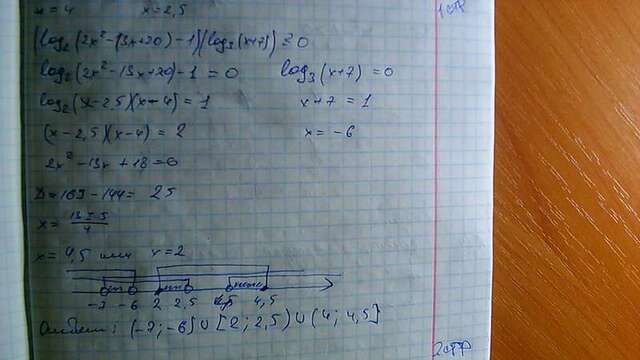 x = 4 x = 2,5
1 стр
(log₂(2x² - 13x + 20) - 1)(log₃(x+7)) ≥ 0
log₂(2x² - 13x + 20) - 1 = 0 log₃(x+7) = 0
log₂(x - 2,5)(x - 4) = 1 x + 7 = 1
(x - 2,5)(x - 4) = 2 x = -6
2x² - 13x + 18 = 0
D = 169 - 144 = 25
x = (13 ± 5)/4
x = 4,5 или x = 2
-7 -6 2 2,5 4,5
Ответ: (-7; -6] ∪ [2; 2,5) ∪ (4; 4,5]
2 стр